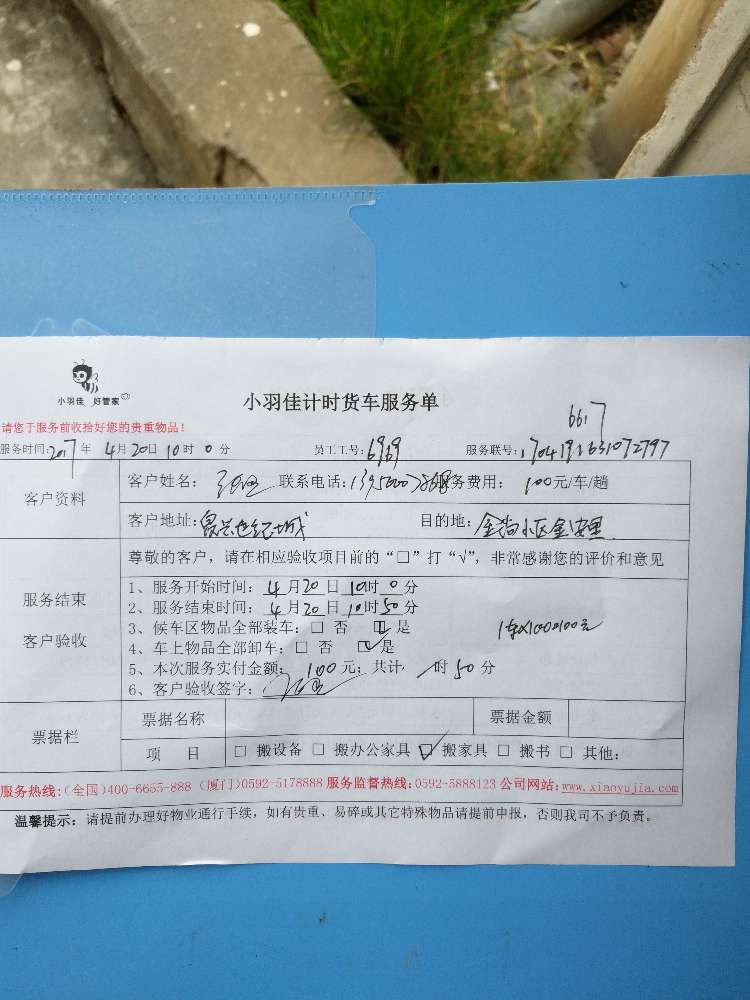 小羽佳 好管家
小羽佳计时货车服务单
6617
请您于服务前收拾好您的贵重物品！
服务时间：2017年 4月20日10时0分 员工工号：6969 服务联号：
客户资料
客户姓名： 联系电话： 服务费用： 100元/车/趟
客户地址： 世纪城 目的地：
服务结束
客户验收
尊敬的客户，请在相应验收项目前的“□”打“√”，非常感谢您的评价和意见
1、服务开始时间：4月20日10时0分
2、服务结束时间：4月20日10时50分
3、候车区物品全部装车：□ 否 ☑ 是
4、车上物品全部卸车：□ 否 ☑ 是
5、本次服务实付金额：100元；共计 时50分
6、客户验收签字：
票据栏
票据名称 票据金额
项 目 □ 搬设备 □ 搬办公家具 ☑ 搬家具 □ 搬书 □ 其他：
服务热线：(全国)400-6655-888 (厦门)0592-5178888 服务监督热线：0592-5888123 公司网站：www.xiaoyujia.com
温馨提示：请提前办理好物业通行手续，如有贵重、易碎或其它特殊物品请提前申报，否则我司不予负责。